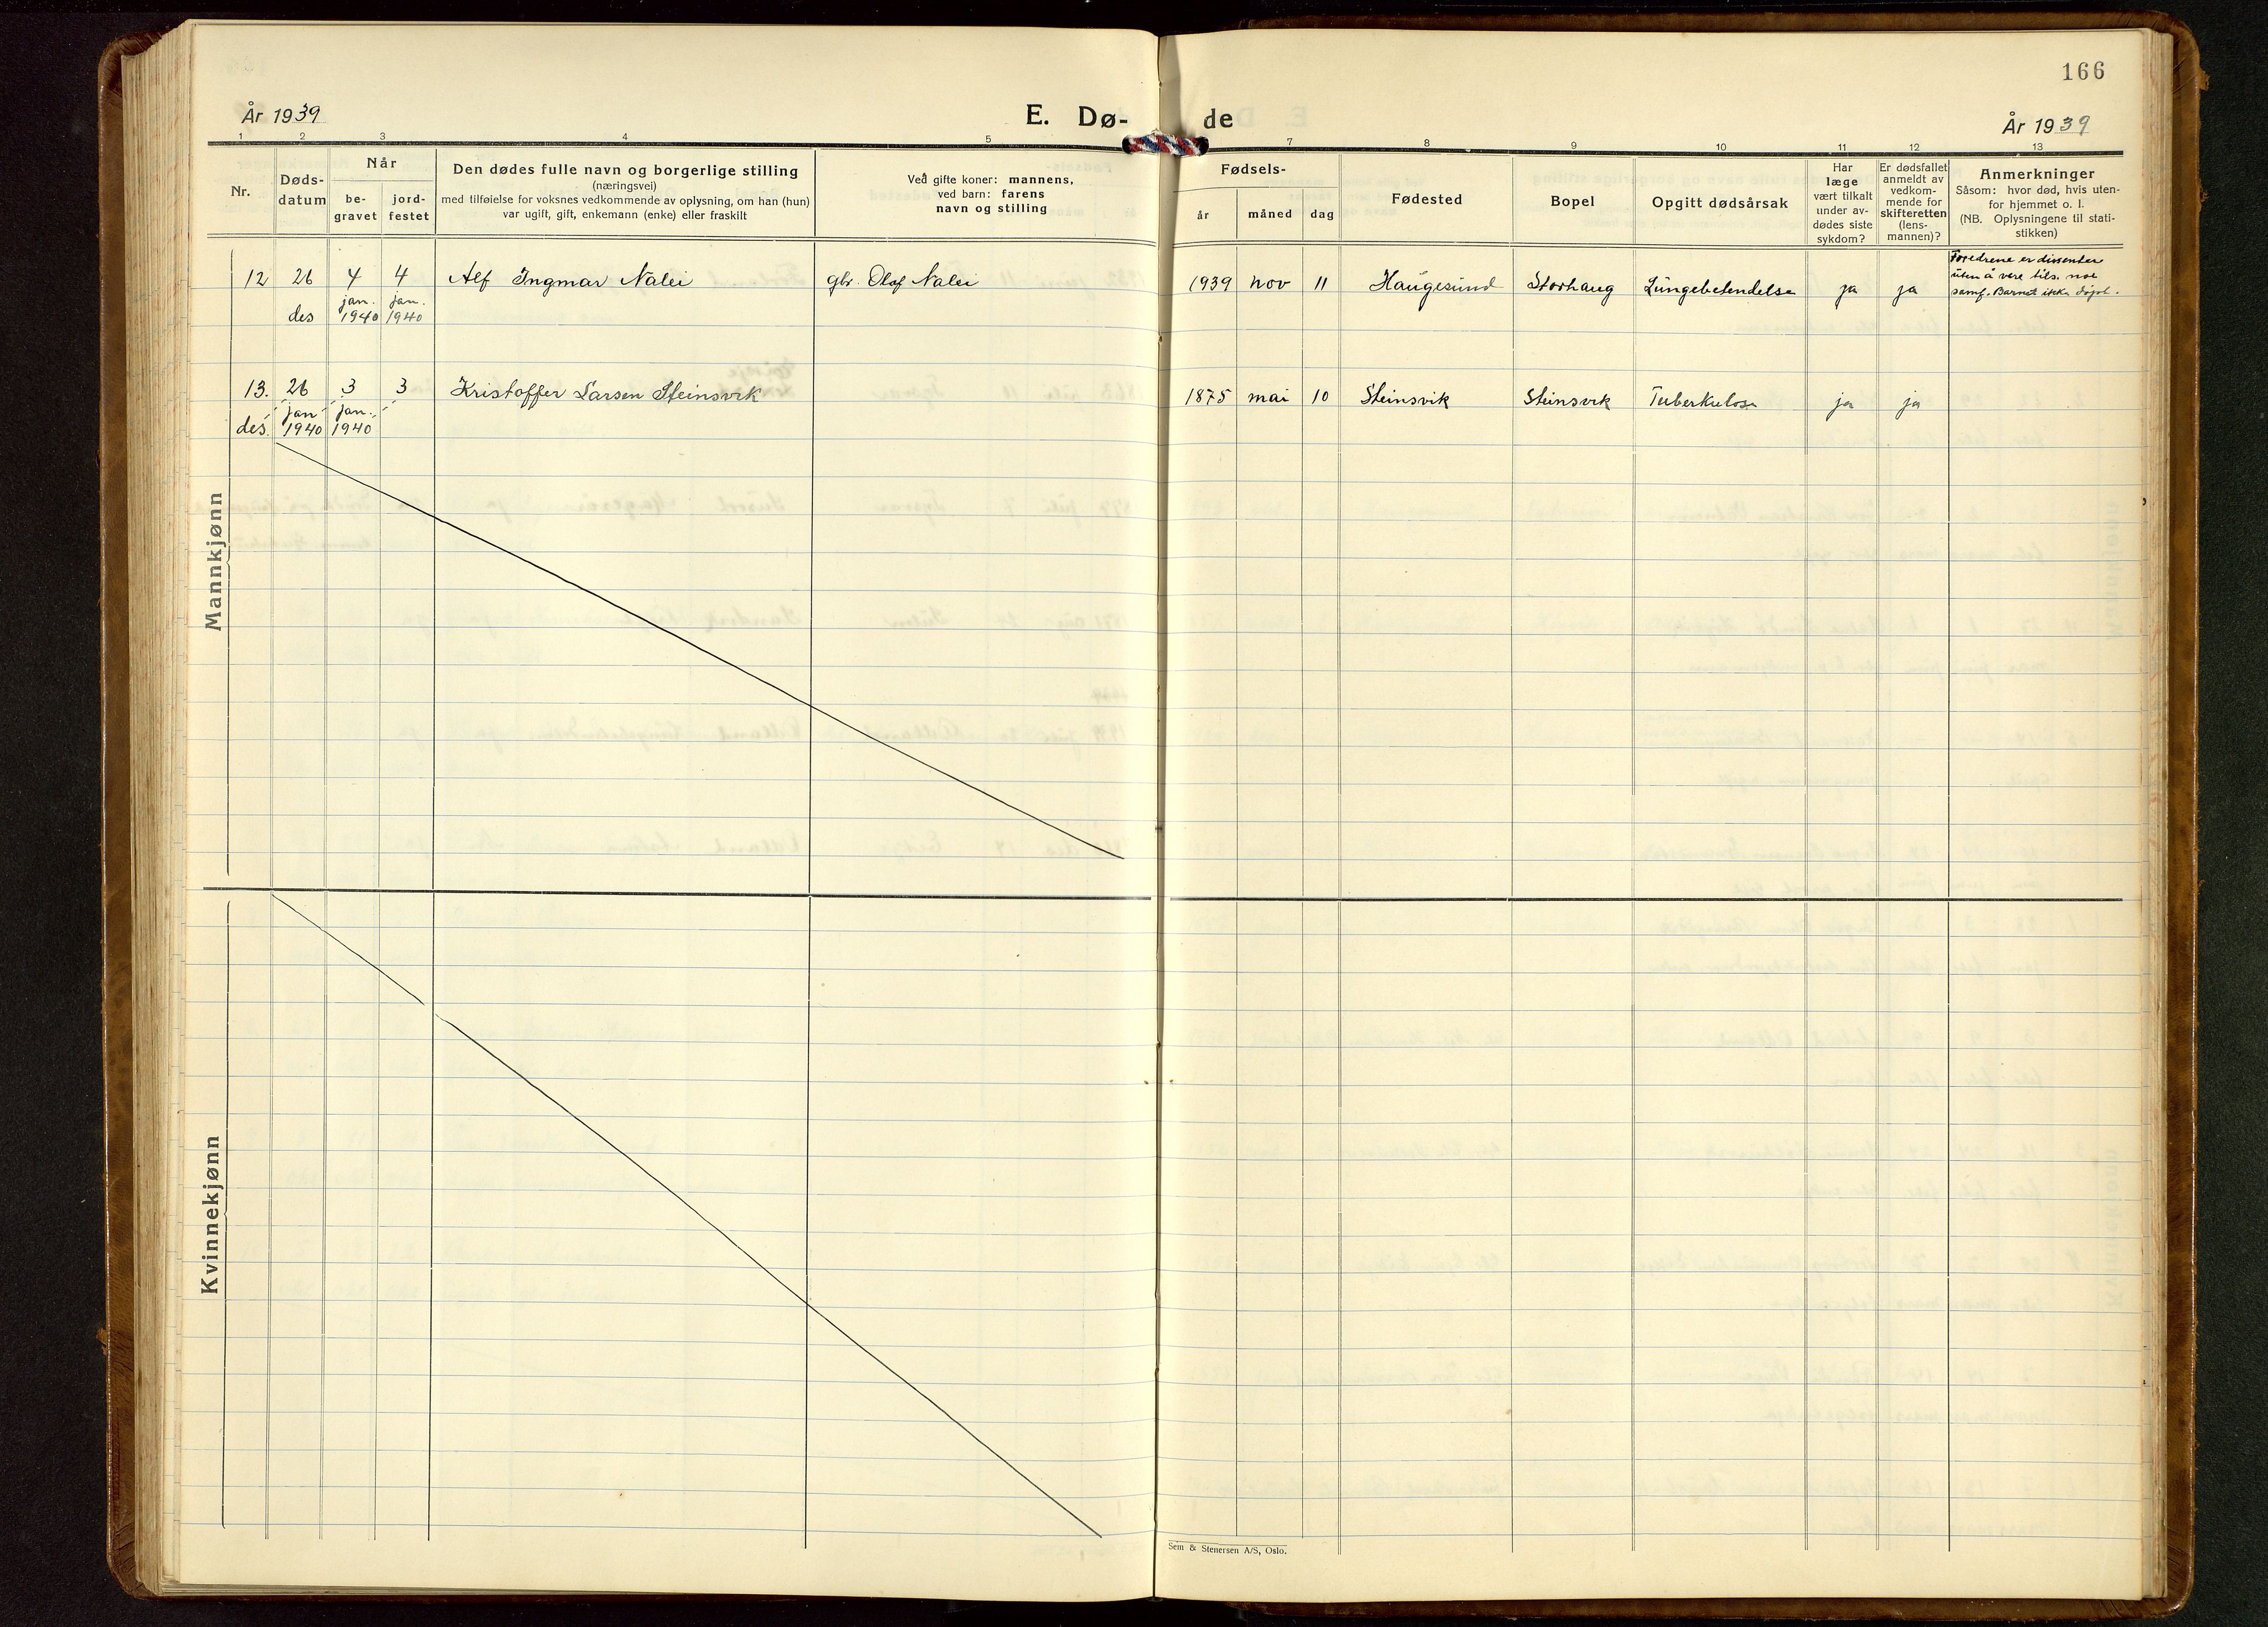 166
År 1939
E. Dø-
de
År 1939
1 2 3 4 5 7 8 9 10 11 12 13
Nr.
Døds-
datum
Når
be-
gravet
jord-
festet
Den dødes fulle navn og borgerlige stilling
(næringsvei)
med tilføielse for voksnes vedkommende av oplysning, om han (hun)
var ugift, gift, enkemann (enke) eller fraskilt
Ved gifte koner: mannens,
ved barn: farens
navn og stilling
Fødsels-
år
måned
dag
Fødested
Bopel
Opgitt dødsårsak
Har
læge
vært tilkalt
under av-
dødes siste
sykdom?
Er dødsfallet
anmeldt av
vedkom-
mende for
skifteretten
(lens-
mannen)?
Anmerkninger
Såsom: hvor død, hvis uten-
for hjemmet o. l.
(NB. Oplysningene til stati-
stikken)
Mannkjønn
12 26 4 4 Alf Ingmar Nalei gbr. Olaf Nalei 1939 nov 11 Haugesund Storhaug Lungebetendelse ja ja
des jan. jan.
1940 1940
Foredrene er dissenter
uten å vere tils. noe
samf. Barnet ikke døpt.
13. 26 3 3 Kristoffer Larsen Steinsvik 1875 mai 10 Steinsvik Steinsvik Tuberkulose ja ja
des. jan jan.
1940 1940
Kvinnekjønn
Sem & Stenersen A/S, Oslo.